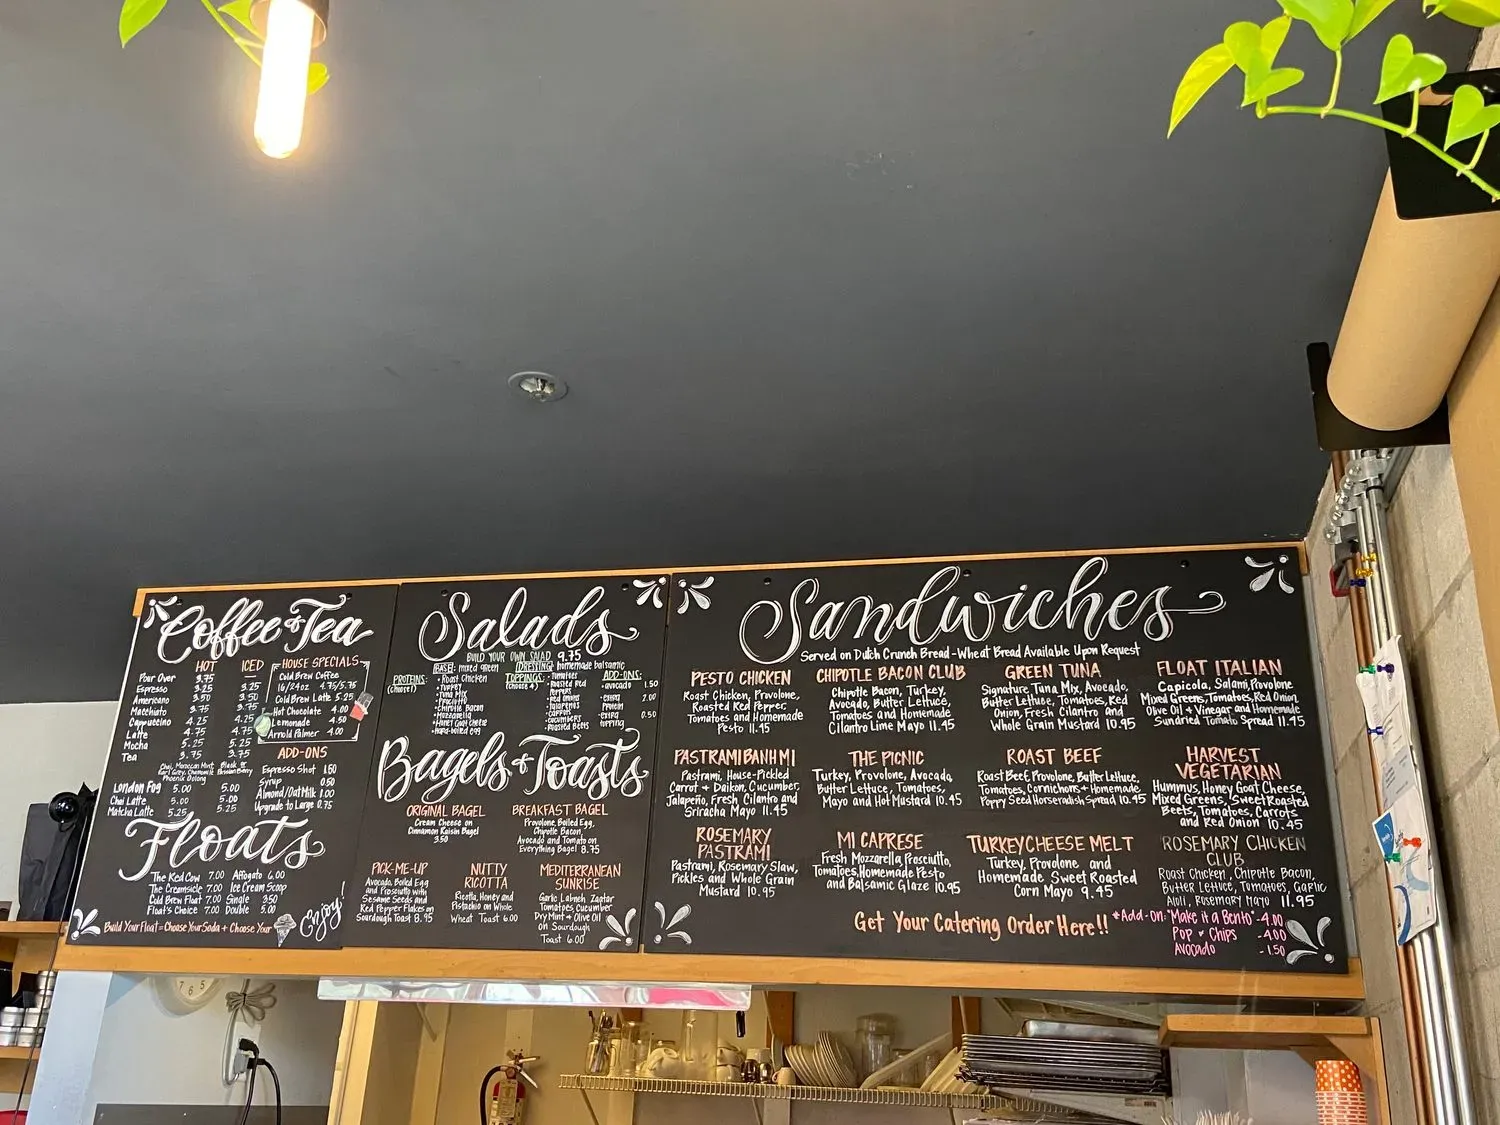 Coffee & Tea
HOT ICED
Pour Over 3.75 —
Espresso 3.25 3.25
Americano 3.50 3.50
Macchiato 3.75 3.75
Cappuccino 4.25 4.25
Latte 4.75 4.75
Mocha 5.25 5.25
Tea 3.75 3.75
Chai, Moroccan Mint
Earl Grey, Chamomile
Phoenix Oolong
Black or
Passion Berry
London Fog 5.00 5.00
Chai Latte 5.00 5.00
Matcha Latte 5.25 5.25
HOUSE SPECIALS
Cold Brew Coffee
16/24oz 4.75/5.75
Cold Brew Latte 5.25
Hot Chocolate 4.00
Lemonade 4.50
Arnold Palmer 4.00
ADD-ONS
Espresso Shot 1.50
Syrup 0.50
Almond/Oat Milk 1.00
Upgrade to Large 0.75
Floats
The Red Cow 7.00
The Creamsicle 7.00
Cold Brew Float 7.00
Float's Choice 7.00
Affogato 6.00
Ice Cream Scoop
Single 3.50
Double 5.00
Build Your Float = Choose Your Soda + Choose Your
Enjoy!
Salads
BUILD YOUR OWN SALAD 9.75
BASE: mixed green DRESSING: homemade balsamic
PROTEINS:
(choose 1)
• Roast Chicken
• Turkey
• Tuna Mix
• Prosciutto
• Chipotle Bacon
• Mozzarella
• Honey Goat Cheese
• Hard-boiled egg
TOPPINGS:
(choose 4)
• Tomatoes
• Roasted Red
Peppers
• Red Onions
• Jalapeños
• Carrots
• Cucumbers
• Roasted Beets
ADD-ONS:
• avocado 1.50
• extra
protein 2.00
• extra
topping 0.50
Bagels & Toasts
ORIGINAL BAGEL
Cream Cheese on
Cinnamon Raisin Bagel
3.50
BREAKFAST BAGEL
Provolone, Boiled Egg,
Chipotle Bacon,
Avocado and Tomato on
Everything Bagel 8.75
PICK-ME-UP
Avocado, Boiled Egg
and Prosciutto with
Sesame Seeds and
Red Pepper Flakes on
Sourdough Toast 8.95
NUTTY
RICOTTA
Ricotta, Honey and
Pistachio on Whole
Wheat Toast 6.00
MEDITERRANEAN
SUNRISE
Garlic Labneh Zaatar
Tomatoes, Cucumber
Dry Mint + Olive Oil
on Sourdough
Toast 6.00
Sandwiches
Served on Dutch Crunch Bread - Wheat Bread Available Upon Request
PESTO CHICKEN
Roast Chicken, Provolone,
Roasted Red Pepper,
Tomatoes and Homemade
Pesto 11.45
CHIPOTLE BACON CLUB
Chipotle Bacon, Turkey,
Avocado, Butter Lettuce,
Tomatoes and Homemade
Cilantro Lime Mayo 11.45
GREEN TUNA
Signature, Tuna Mix, Avocado,
Butter Lettuce, Tomatoes, Red
Onion, Fresh Cilantro and
Whole Grain Mustard 10.95
FLOAT ITALIAN
Capicola, Salami, Provolone
Mixed Greens, Tomatoes, Red Onion,
Olive Oil + Vinegar and Homemade
Sundried Tomato Spread 11.45
PASTRAMI BANH MI
Pastrami, House-Pickled
Carrot + Daikon, Cucumber,
Jalapeño, Fresh Cilantro and
Sriracha Mayo 11.45
THE PICNIC
Turkey, Provolone, Avocado,
Butter Lettuce, Tomatoes,
Mayo and Hot Mustard 10.45
ROAST BEEF
Roast Beef, Provolone, Butter Lettuce,
Tomatoes, Cornichons + Homemade
Poppy Seed Horseradish Spread 10.45
HARVEST
VEGETARIAN
Hummus, Honey Goat Cheese,
Mixed Greens, Sweet Roasted
Beets, Tomatoes, Carrots
and Red Onion 10.45
ROSEMARY
PASTRAMI
Pastrami, Rosemary Slaw,
Pickles and Whole Grain
Mustard 10.95
MI CAPRESE
Fresh Mozzarella, Prosciutto,
Tomatoes, Homemade Pesto
and Balsamic Glaze 10.95
TURKEY CHEESE MELT
Turkey, Provolone and
Homemade Sweet Roasted
Corn Mayo 9.45
ROSEMARY CHICKEN
CLUB
Roast Chicken, Chipotle Bacon,
Butter Lettuce, Tomatoes, Garlic
Aioli, Rosemary Mayo 11.95
Get Your Catering Order Here!!
*Add-on: "Make it a Bento" -4.00
Pop + Chips -4.00
Avocado -1.50